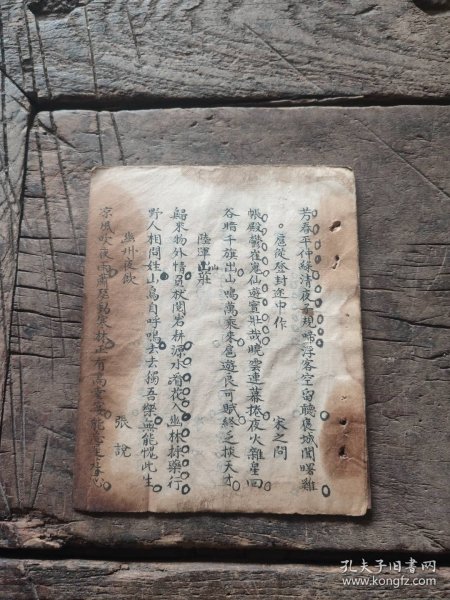 芳春平仲綠清夜子規啼浮客空留聽褒城聞曙雞
扈從登封途中作
宋之問
帳殿鬱崔嵬仙遊實壯哉曉雲連幕捲夜火雜星回
谷暗千旗出山鳴萬乘來扈遊良可賦終乏掞天才
陸渾山莊
歸來物外情負杖閱岩耕源水看花入幽林採藥行
野人相問姓山鳥自呼鳴去去獨吾樂無能愧此生
幽州夜飲
張說
涼風吹夜雨蕭瑟動寒林正有高堂宴能忘遲暮心
孔夫子旧书网
www.kongfz.com